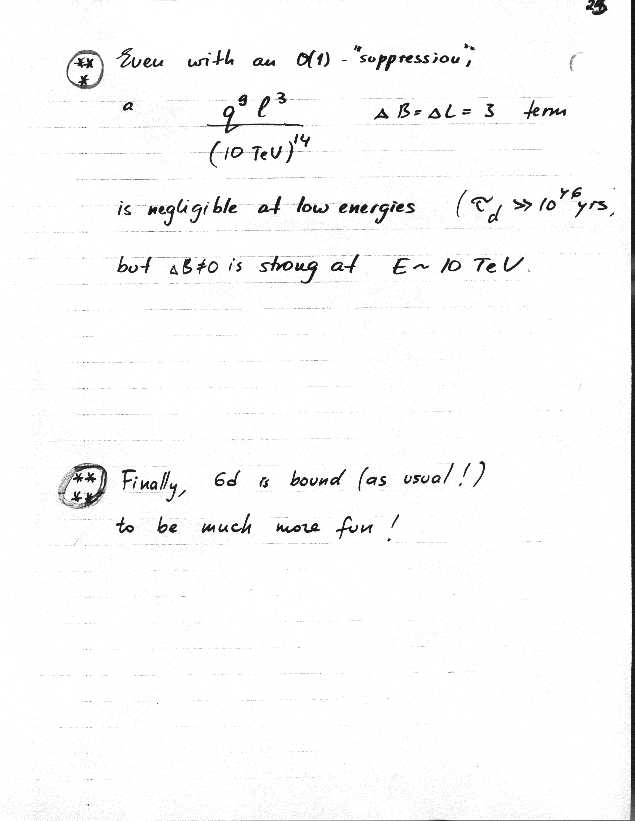 *** Even with an O(1) - "suppression",
a q⁹ l³ / (10 TeV)¹⁴ ΔB = ΔL = 3 term
is negligible at low energies (τ_d >> 10⁴⁶ yrs,
but ΔB≠0 is strong at E ~ 10 TeV.
**** Finally, 6d is bound (as usual!)
to be much more fun!